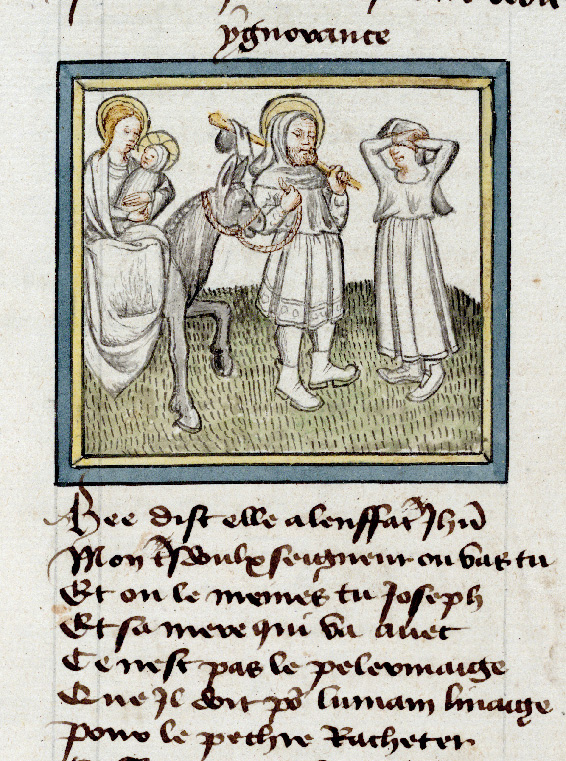 ygnorance
Bee dist elle a lenffat Jhu
Mon tsdoulx seigneur ou vas tu
Et ou le meines tu Joseph
Et sa mere qui va avec
Ce nest pas le pelermaige
Que Jl doit po lumain linaige
pour le pechie Racheter